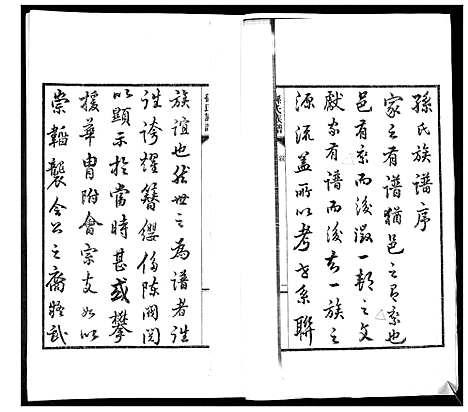 孫氏族譜序
家之有譜猶邑之有乘也
邑有乘而後徵一郡之文
獻家有譜而後知一族之
源流蓋所以考世系聯
族誼也然世之為譜者往
往誇耀簪纓侈陳閥閱
以顯示於當時甚或攀
援華胄附會宗支如以
崇韜襲令公之裔
孫氏族譜
序
孫氏族譜